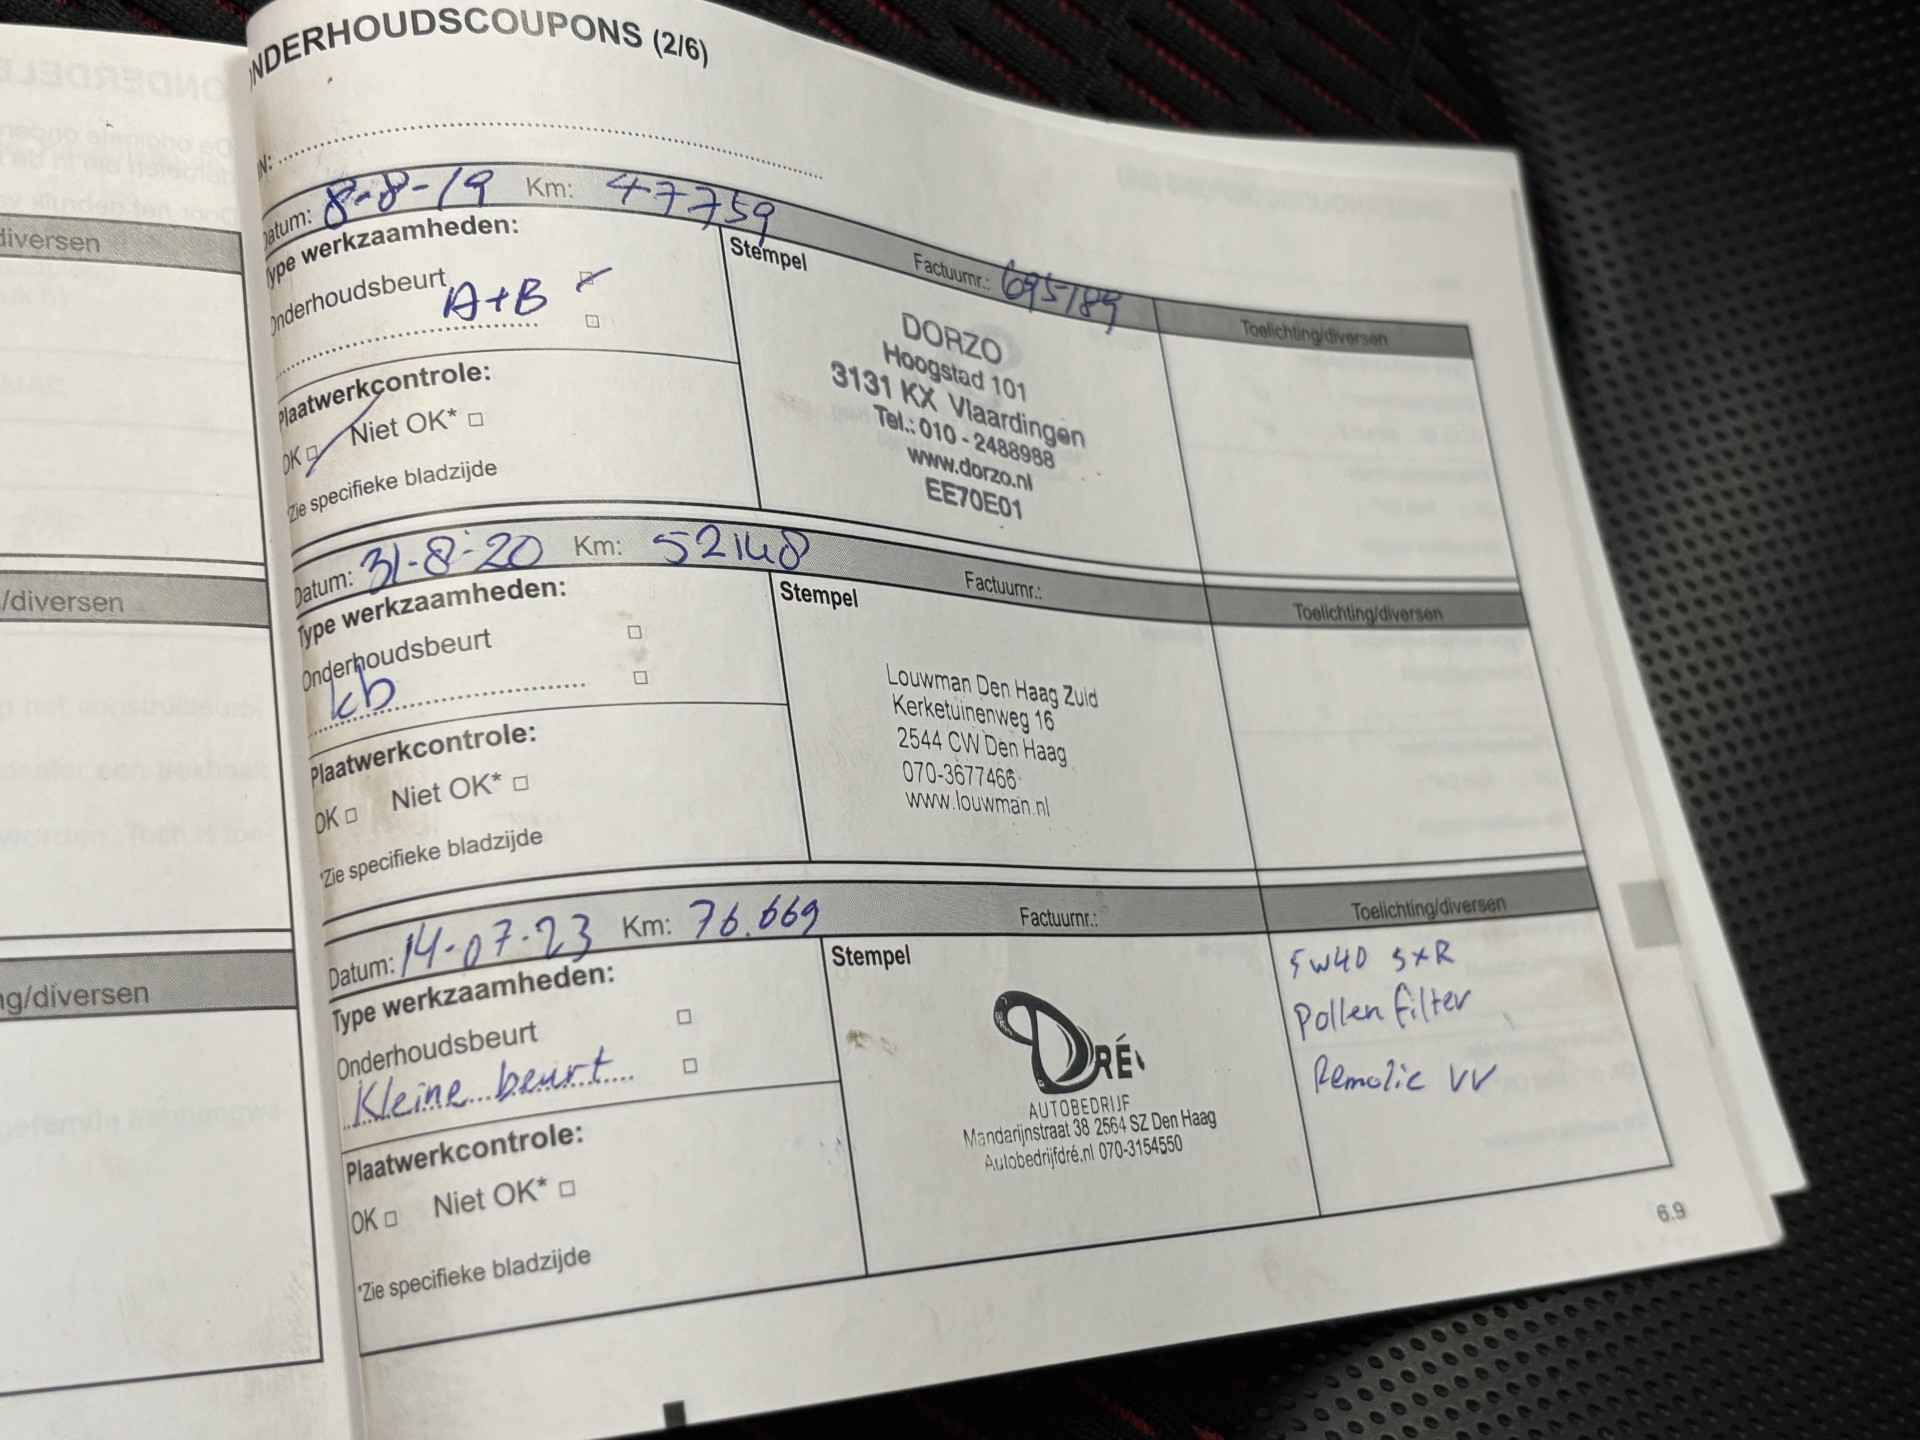 NDERHOUDSCOUPONS (2/6)
N:
Datum: 8-8-19 Km: 47759 Factuurnr.: 695189 Toelichting/diversen
Type werkzaamheden:
Onderhoudsbeurt
A+B
Plaatwerkcontrole:
OK □ Niet OK* □
*Zie specifieke bladzijde
Stempel
DORZO
Hoogstad 101
3131 KX Vlaardingen
Tel.: 010 - 2488988
www.dorzo.nl
EE70E01
Datum: 31-8-20 Km: 52148 Factuurnr.: Toelichting/diversen
Type werkzaamheden:
Onderhoudsbeurt □
kb □
Plaatwerkcontrole:
OK □ Niet OK* □
*Zie specifieke bladzijde
Stempel
Louwman Den Haag Zuid
Kerketuinenweg 16
2544 CW Den Haag
070-3677466
www.louwman.nl
Datum: 14-07-23 Km: 76.669 Factuurnr.: Toelichting/diversen
Type werkzaamheden:
Onderhoudsbeurt □
Kleine beurt □
Plaatwerkcontrole:
OK □ Niet OK* □
*Zie specifieke bladzijde
Stempel
DRÉ
AUTOBEDRIJF
Mandarijnstraat 38 2564 SZ Den Haag
Autobedrijfdré.nl 070-3154550
5W40 SXR
Pollenfilter
Remolie VV
6.9
diversen
/diversen
ng/diversen